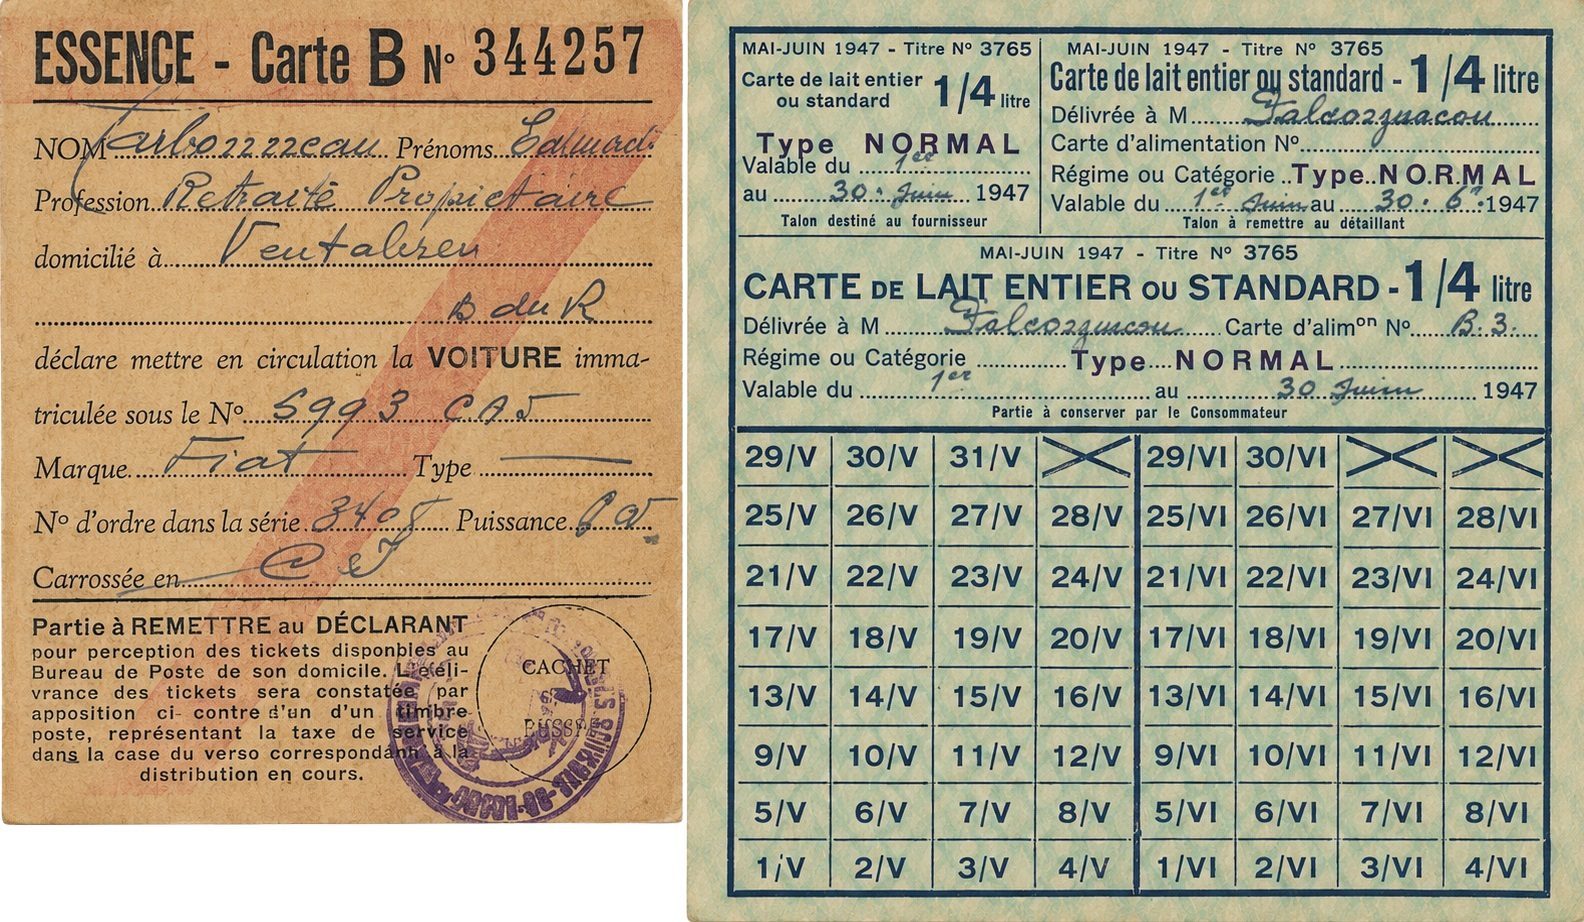 ESSENCE - Carte B Nº 344257
NOM Prénoms
Profession Retraité Propietaire
domicilié à Ventabren
B du R
déclare mettre en circulation la VOITURE imma-
triculée sous le Nº 5993 CA5
Marque Fiat Type
Nº d'ordre dans la série Puissance
Carrossée en
Partie à REMETTRE au DÉCLARANT
pour perception des tickets disponbles au
Bureau de Poste de son domicile. 
vrance des tickets sera constatée par
apposition ci- contre d'un d'un timbre-
poste, représentant la taxe de service
dans la case du verso correspondánh à la
distribution en cours.
CACHET
MAI-JUIN 1947 - Titre Nº 3765
Carte de lait entier
ou standard 1/4 litre
Type NORMAL
Valable du 1er
au 30 Juin 1947
Talon destiné au fournisseur
MAI-JUIN 1947 - Titre Nº 3765
Carte de lait entier ou standard - 1/4 litre
Délivrée à M
Carte d'alimentation Nº
Régime ou Catégorie Type NORMAL
Valable du 1er Juin au 30. 6 1947
Talon à remettre au détaillant
MAI-JUIN 1947 - Titre Nº 3765
CARTE DE LAIT ENTIER OU STANDARD - 1/4 litre
Délivrée à M Carte d'alimon Nº B.3.
Régime ou Catégorie Type NORMAL
Valable du 1er au 30 Juin 1947
Partie à conserver par le Consommateur
29/V 30/V 31/V 29/VI 30/VI
25/V 26/V 27/V 28/V 25/VI 26/VI 27/VI 28/VI
21/V 22/V 23/V 24/V 21/VI 22/VI 23/VI 24/VI
17/V 18/V 19/V 20/V 17/VI 18/VI 19/VI 20/VI
13/V 14/V 15/V 16/V 13/VI 14/VI 15/VI 16/VI
9/V 10/V 11/V 12/V 9/VI 10/VI 11/VI 12/VI
5/V 6/V 7/V 8/V 5/VI 6/VI 7/VI 8/VI
1/V 2/V 3/V 4/V 1/VI 2/VI 3/VI 4/VI